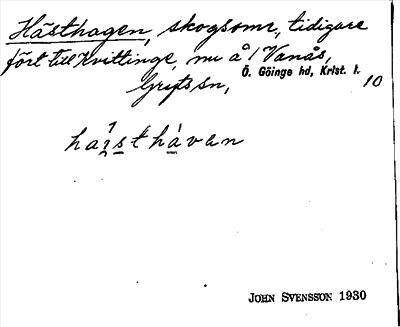 Hästhagen, skogsomr., tidigare
fört till Kvittinge, nu å 1 Vanås,
Ö. Göinge hd, Krist. l.
Gryts sn, 10
haı̨sthàvan
JOHN SVENSSON 1930